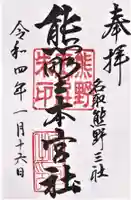 奉拝
名取熊野三社
熊野本宮社
令和四年一月十六日